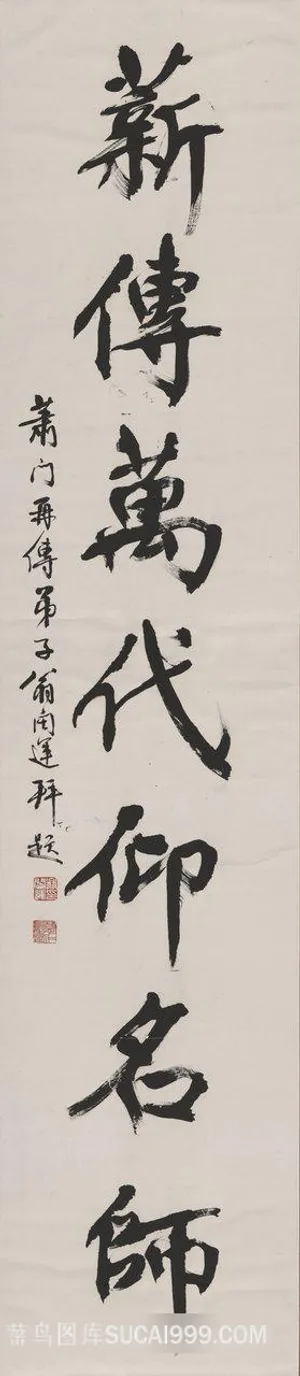 薪傳萬代仰名師
蕭门再傳弟子翁闿運拜題
菜鸟图库SUCAI999.COM